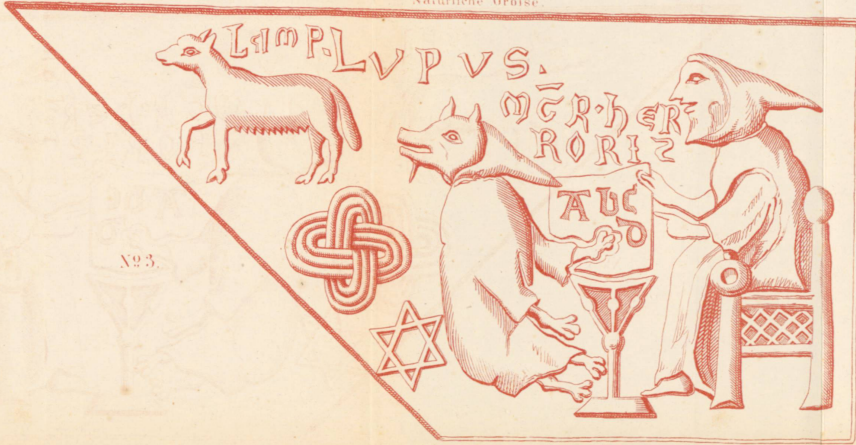 Natürliche Grösse.
LamP. LVPVS.
MC̄R·hER
RORIZ
Abc
D
Nº 3.